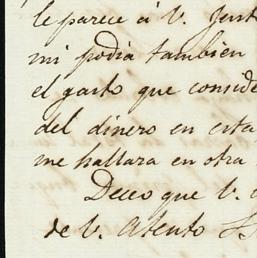 le parece á V. Just
mi podia tambien
el gasto que conside
del dinero en esta
me hallara en otra
Deceo que V.
de V. Atento S.S.